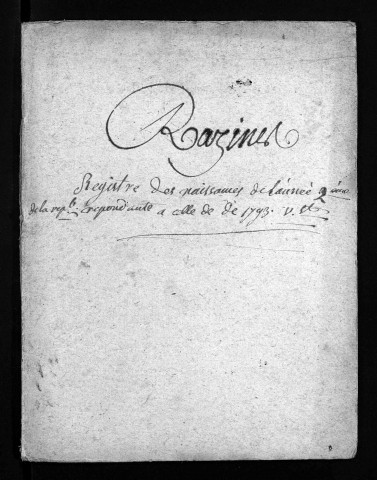 Razines
Registre des naissances de l'année 2ème
de la rep. repondante a celle de 1793. v. st.